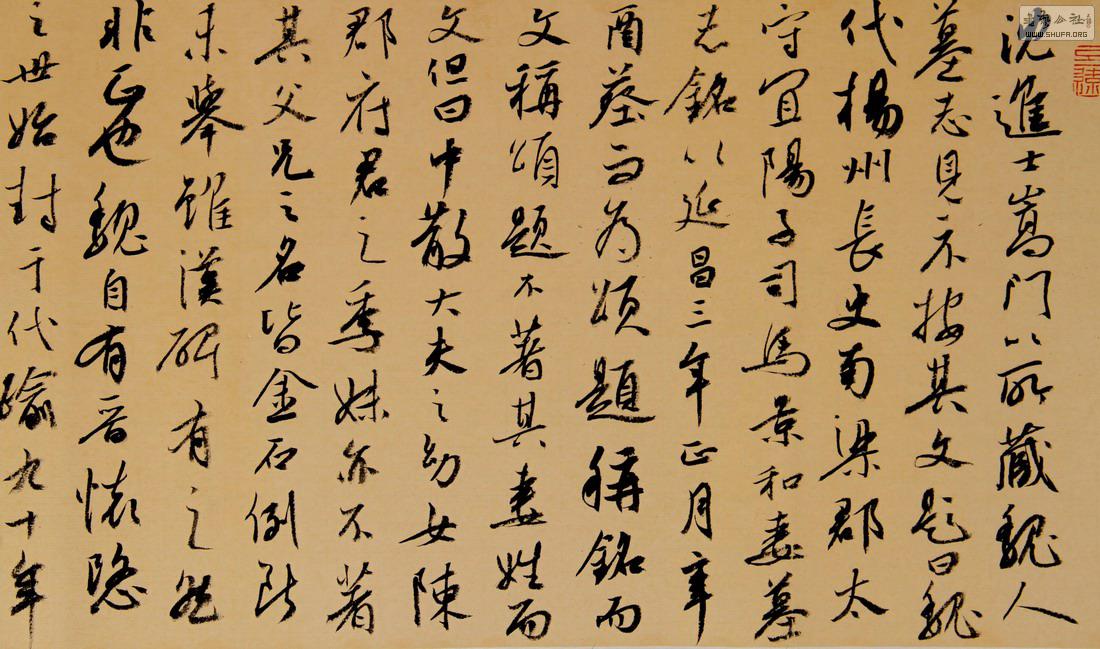 沈進士嵩門以所藏魏人
墓志見示按其文題曰魏
代楊州長史南梁郡太
守宜陽子司馬景和妻墓
志銘以延昌三年正月辛
酉葬而為頌題稱銘而
文稱頌題不著其妻姓而
文但曰中散大夫之幼女陳
郡府君之季妹亦不著
其父兄之名皆金石例所
未舉雖漢碑有之然
非正也魏自有晉懷愍
之世始封于代踰九十年
WWW.SHUFA.ORG